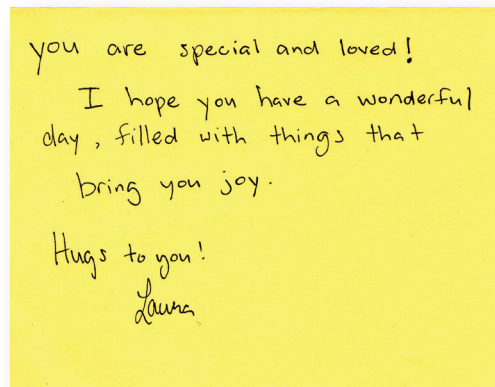 you are special and loved!
I hope you have a wonderful
day, filled with things that
bring you joy.
Hugs to you!
Laura